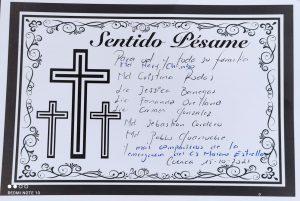 Sentido Pésame
Para ud. y toda su familia
Md
Md Cristina Rodas
Lic Jessica Banegas
Lic Fernanda Orellana
Lic Carmen Gonzalez
Md Sebastian Cordero
Md Pablo
Y mas compañeros de la
emergencia del Mariano Estrella
Cuenca 15-10-2021
REDMI NOTE 10